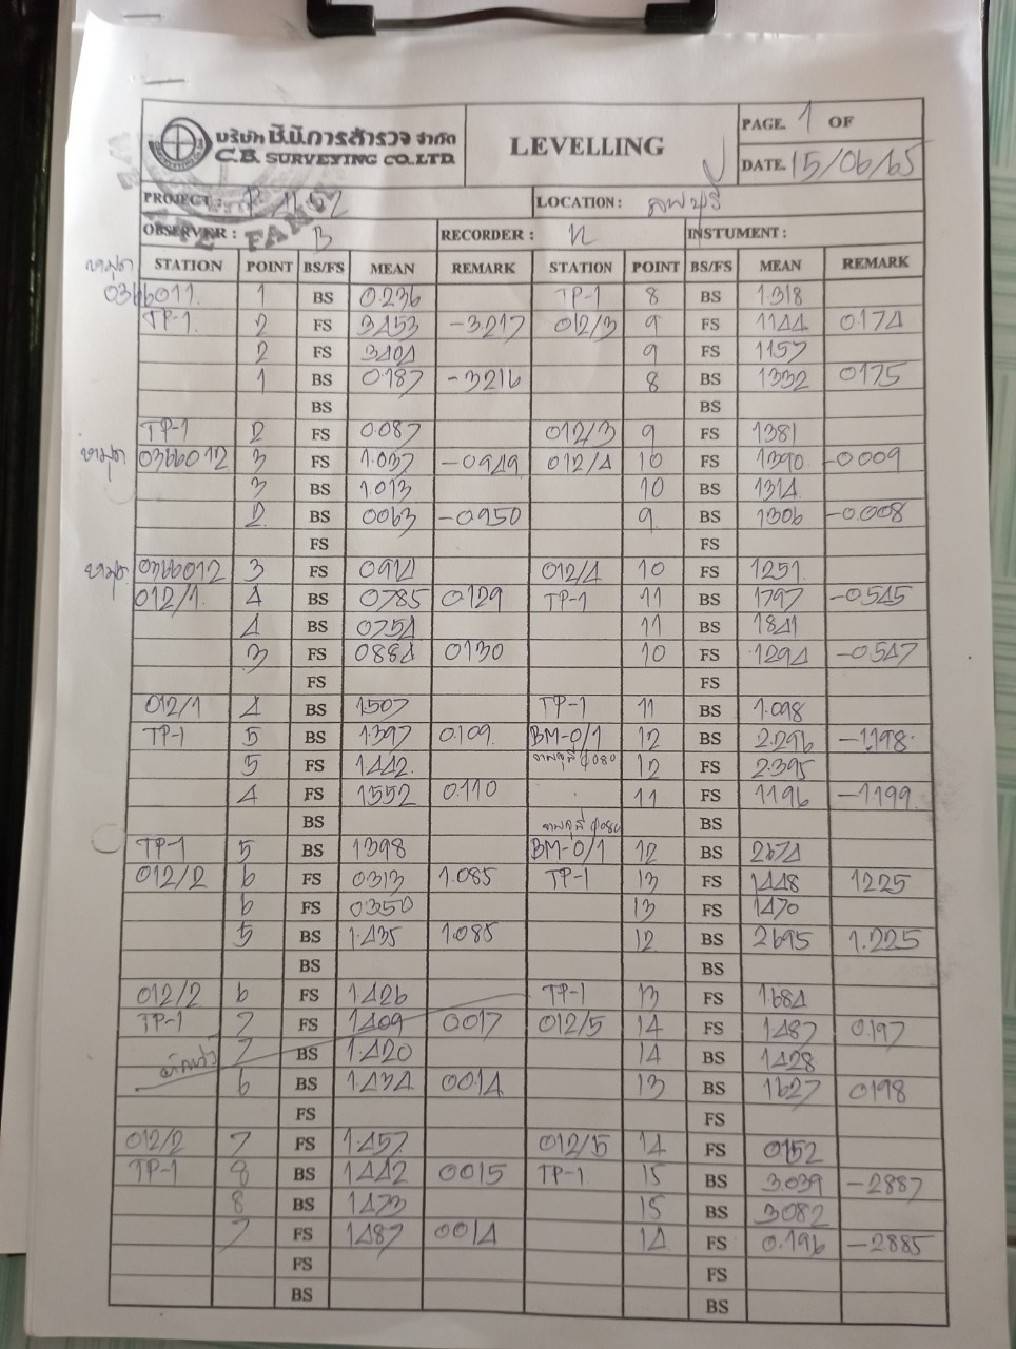 บริษัท ซี.บี.การสำรวจ จำกัด
C.B. SURVEYING CO.,LTD
LEVELLING
PAGE. 1 OF
DATE. 15/06/65
PROJECT :
LOCATION : ลพบุรี
OBSERVER : B RECORDER : INSTUMENT :
หมุด STATION POINT BS/FS MEAN REMARK STATION POINT BS/FS MEAN REMARK
0366011. 1 BS 0.236 TP-1 8 BS 1.318
TP-1. 2 FS 3453 -3.217 012/3 9 FS 1144 0174
2 FS 3404 9 FS 1157
1 BS 0.187 -3216 8 BS 1332 0175
BS BS
TP-1 2 FS 0.087 012/3 9 FS 1381
หมุด 0366012 3 FS 1.037 -0949 012/4 10 FS 1390 -0009
3 BS 1.013 10 BS 1314
2 BS 0063 -0950 9 BS 1306 -0.008
FS FS
หมุด 0366012 3 FS 0914 012/4 10 FS 1251
012/1. 4 BS 0785 0129 TP-1 11 BS 1797 -0545
4 BS 0754 11 BS 1841
3 FS 0884 0130 10 FS 1294 -0547
FS FS
012/1 4 BS 1507 TP-1 11 BS 1.098
TP-1 5 BS 1.397 0.109. BM-0/1 12 BS 2.296 -1198.
5 FS 1442. 12 FS 2.395
4 FS 1552 0.110 11 FS 1196 -1199
BS BS
TP-1 5 BS 1398 BM-0/1 12 BS 2674
012/2 6 FS 0313 1.085 TP-1 13 FS 1448 1225
6 FS 0350 13 FS 1470
5 BS 1.435 1.085 12 BS 2695 1.225
BS BS
012/2 6 FS 1426 TP-1 13 FS 1.684
TP-1 7 FS 1409 0017 012/5 14 FS 1487 0.197
7 BS 1.420 14 BS 1428
6 BS 1.434 0014 13 BS 1627 0198
FS FS
012/2 7 FS 1.457 012/5 14 FS 0152
TP-1 8 BS 1442 0015 TP-1 15 BS 3.039 -2887
8 BS 1473 15 BS 3082
7 FS 1487 0014 14 FS 0.196 -2885
FS FS
BS BS